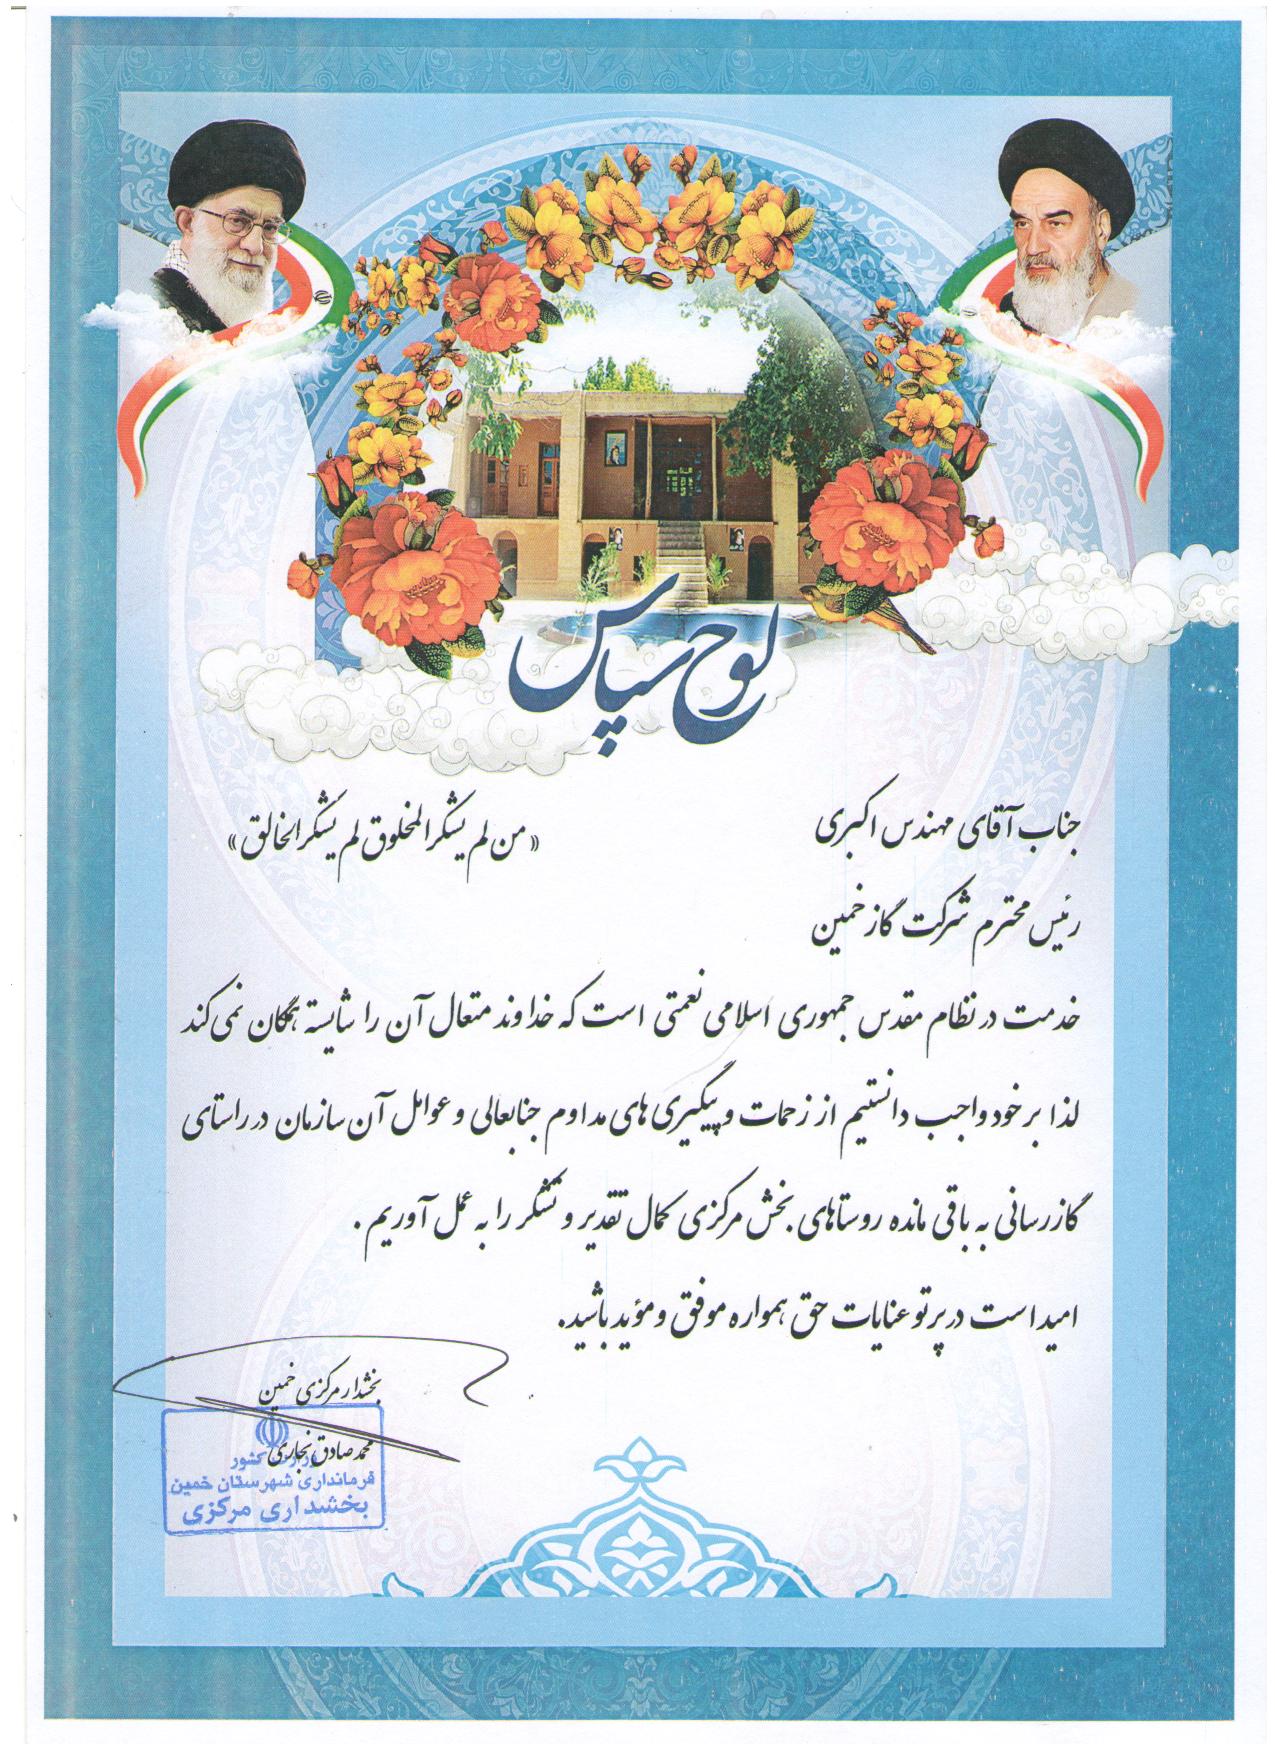 لوح سپاس
جناب آقای مهندس اکبری
«من لم یشکر المخلوق لم یشکر الخالق»
رئیس محترم شرکت گاز خمین
خدمت در نظام مقدس جمهوری اسلامی نعمتی است که خداوند متعال آن را شایسته همگان نمی کند
لذا بر خود واجب دانستیم از زحمات و پیگیری های مداوم جنابعالی و عوامل آن سازمان در راستای
گازرسانی به باقی مانده روستاهای بخش مرکزی کمال تقدیر و تشکر را به عمل آوریم.
امید است در پرتو عنایات حق همواره موفق و مؤید باشید.
بخشدار مرکزی خمین
محمد صادق نجاری
کشور
فرمانداری شهرستان خمین
بخشداری مرکزی